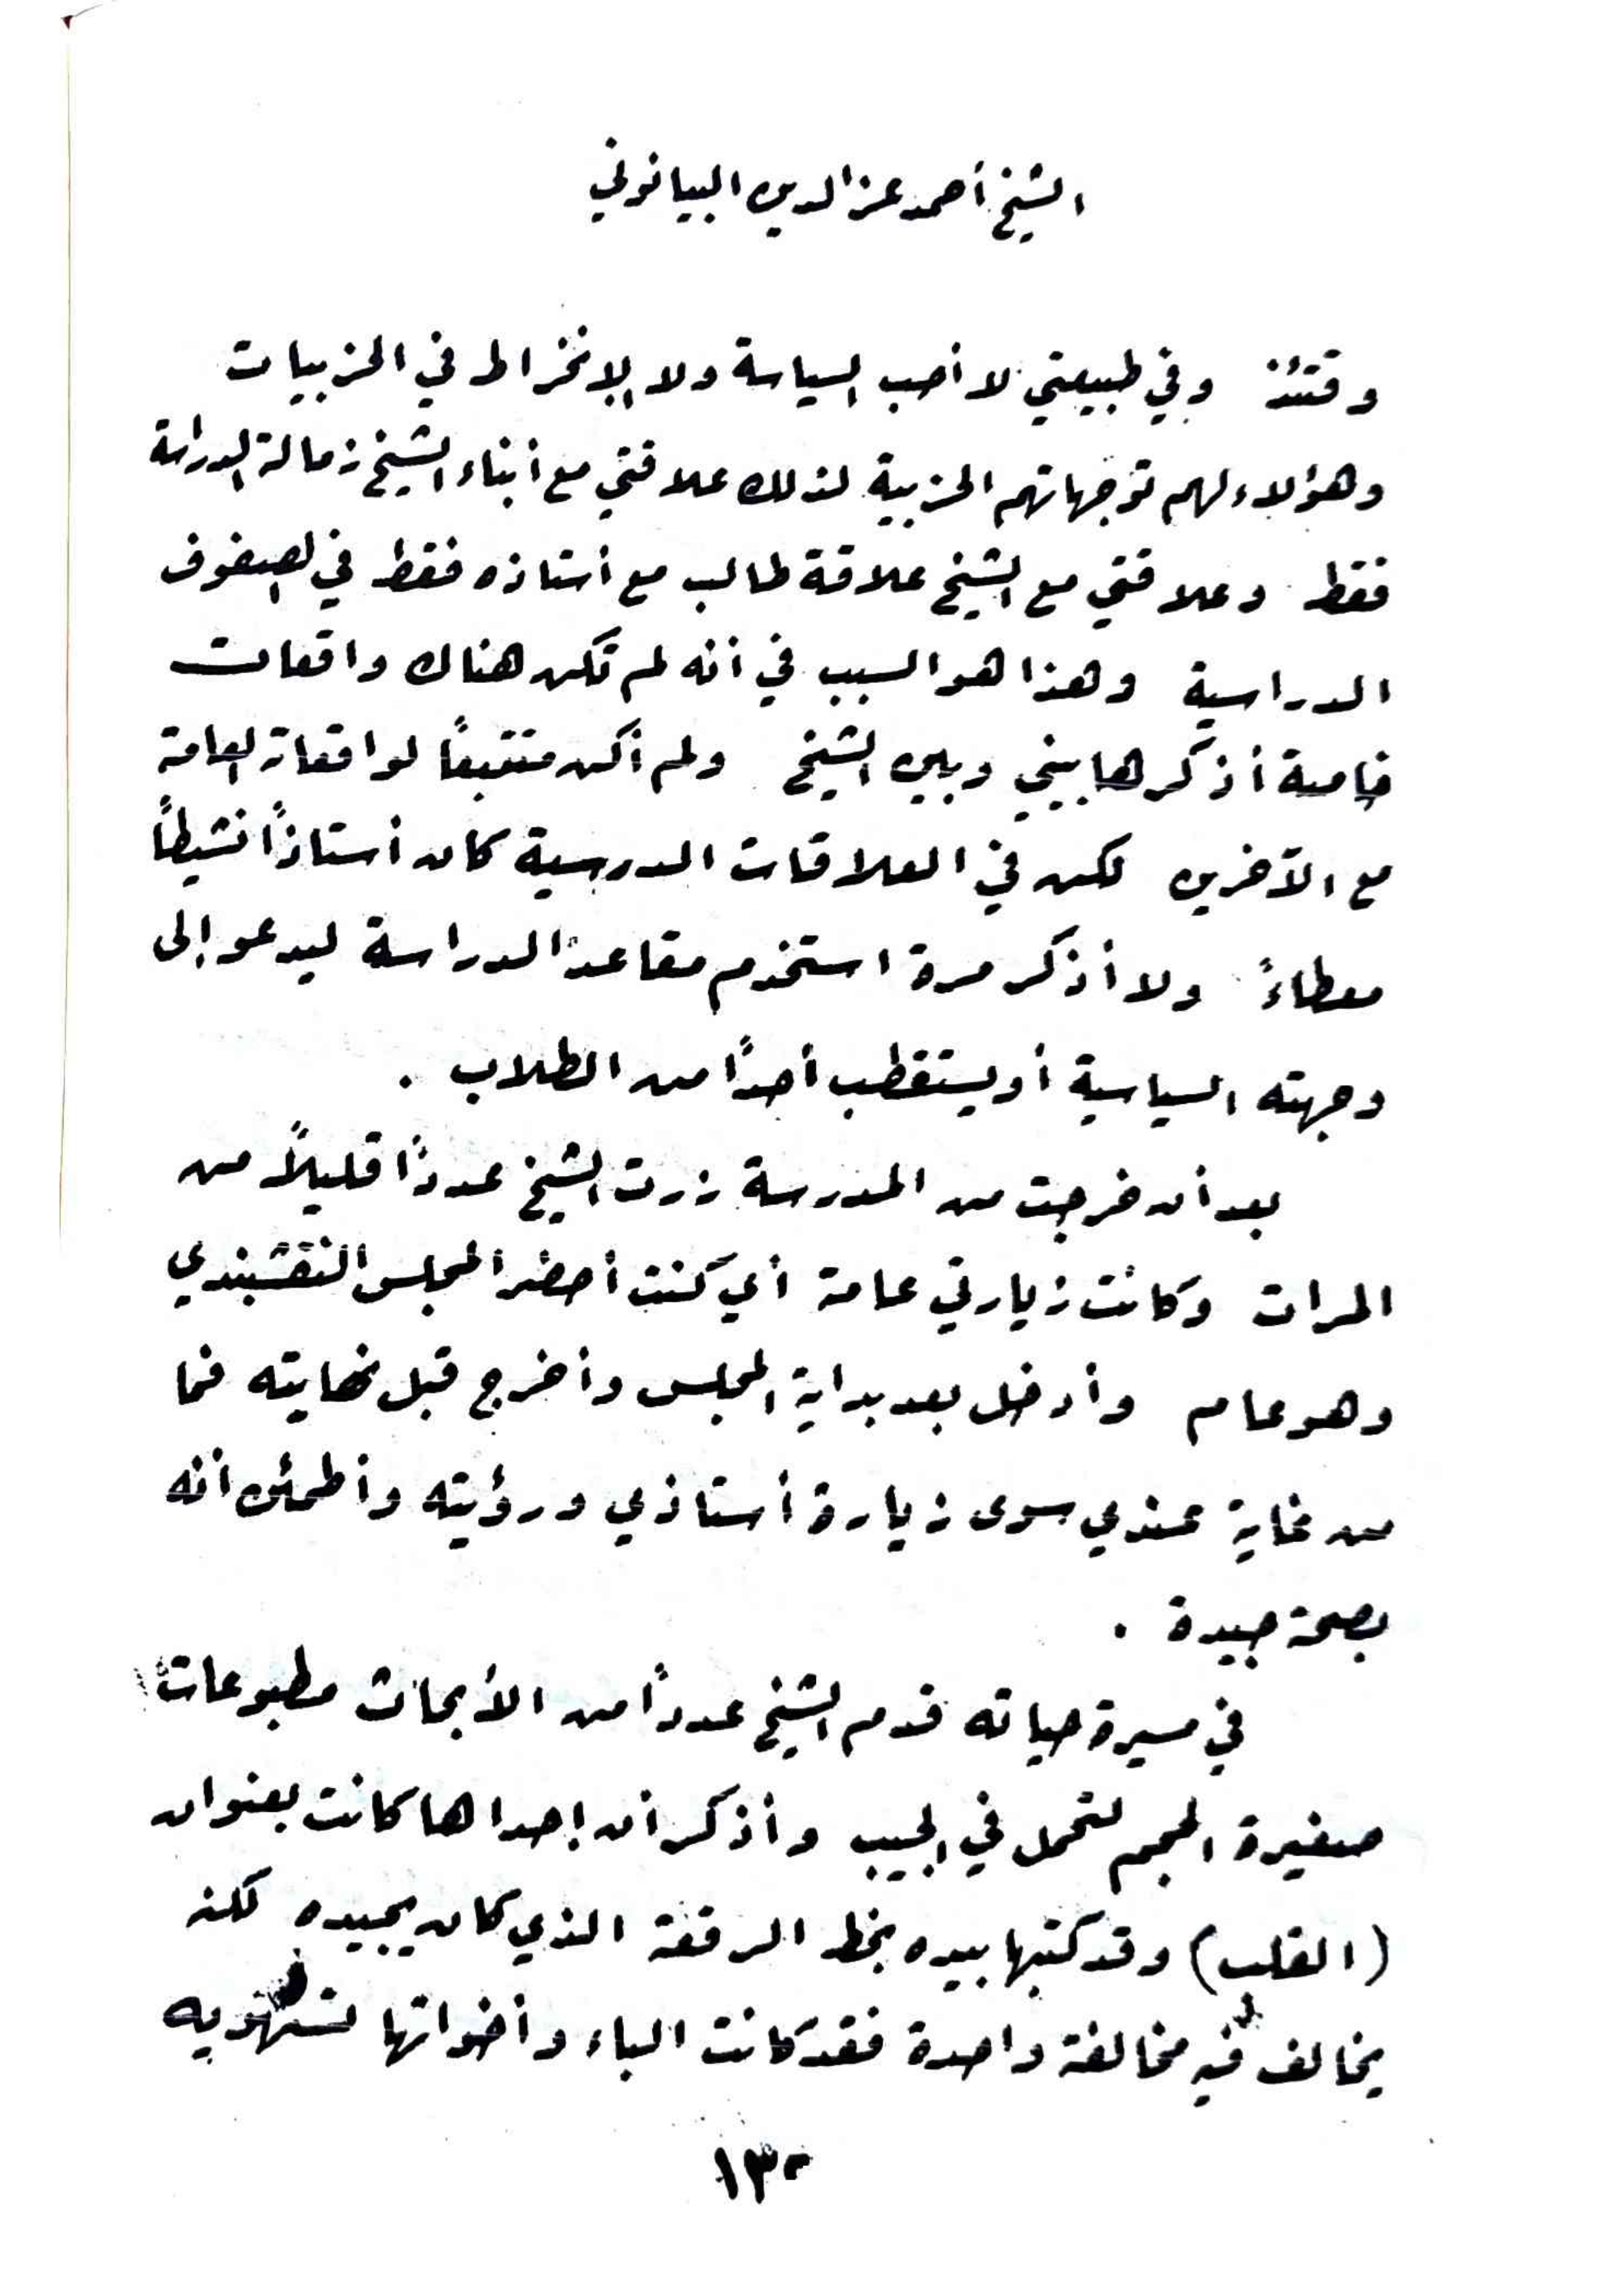 الشيخ أحمد عز الدين البيانوني
وقتئذ وفي طبيعتي لا أحب السياسة ولا الإنخراط في الحزبيات
وهؤلاء لهم توجهاتهم الحزبية لذلك علاقتي مع أبناء الشيخ زمالة الدراسة
فقط وعلاقتي مع الشيخ علاقة طالب مع أستاذه فقط في الصفوف
الدراسية وهذا هو السبب في أنه لم تكن هناك واقعات
خاصة أذكرها بيني وبين الشيخ ولم أكن متتبعاً لواقعاته العامة
مع الآخرين لكن في العلاقات المدرسية كان أستاذاً نشيطاً
معطاءً ولا أذكر مرة استخدم مقاعد الدراسة ليدعو إلى
وجهته السياسية أو يستقطب أحداً من الطلاب .
بعد أن خرجت من المدرسة زرت الشيخ عدداً قليلاً من
المرات وكانت زيارتي عامة أي كنت أحضر المجلس النقشبندي
وهو عام وأدخل بعد بداية المجلس وأخرج قبل نهايته فما
من غاية عندي سوى زيارة أستاذي ورؤيته وأطمئن أنه
بصحة جيدة .
في مسيرة حياته قدم الشيخ عدداً من الأبحاث مطبوعات
صغيرة الحجم لتحمل في الجيب وأذكر أن إحداها كانت بعنوان
(القلب) وقد كتبها بيده بخط الرقعة الذي كان يجيده لكنه
يخالف فيه مخالفة واحدة فقد كانت الباء وأخواتها تستهويه
١٣٢